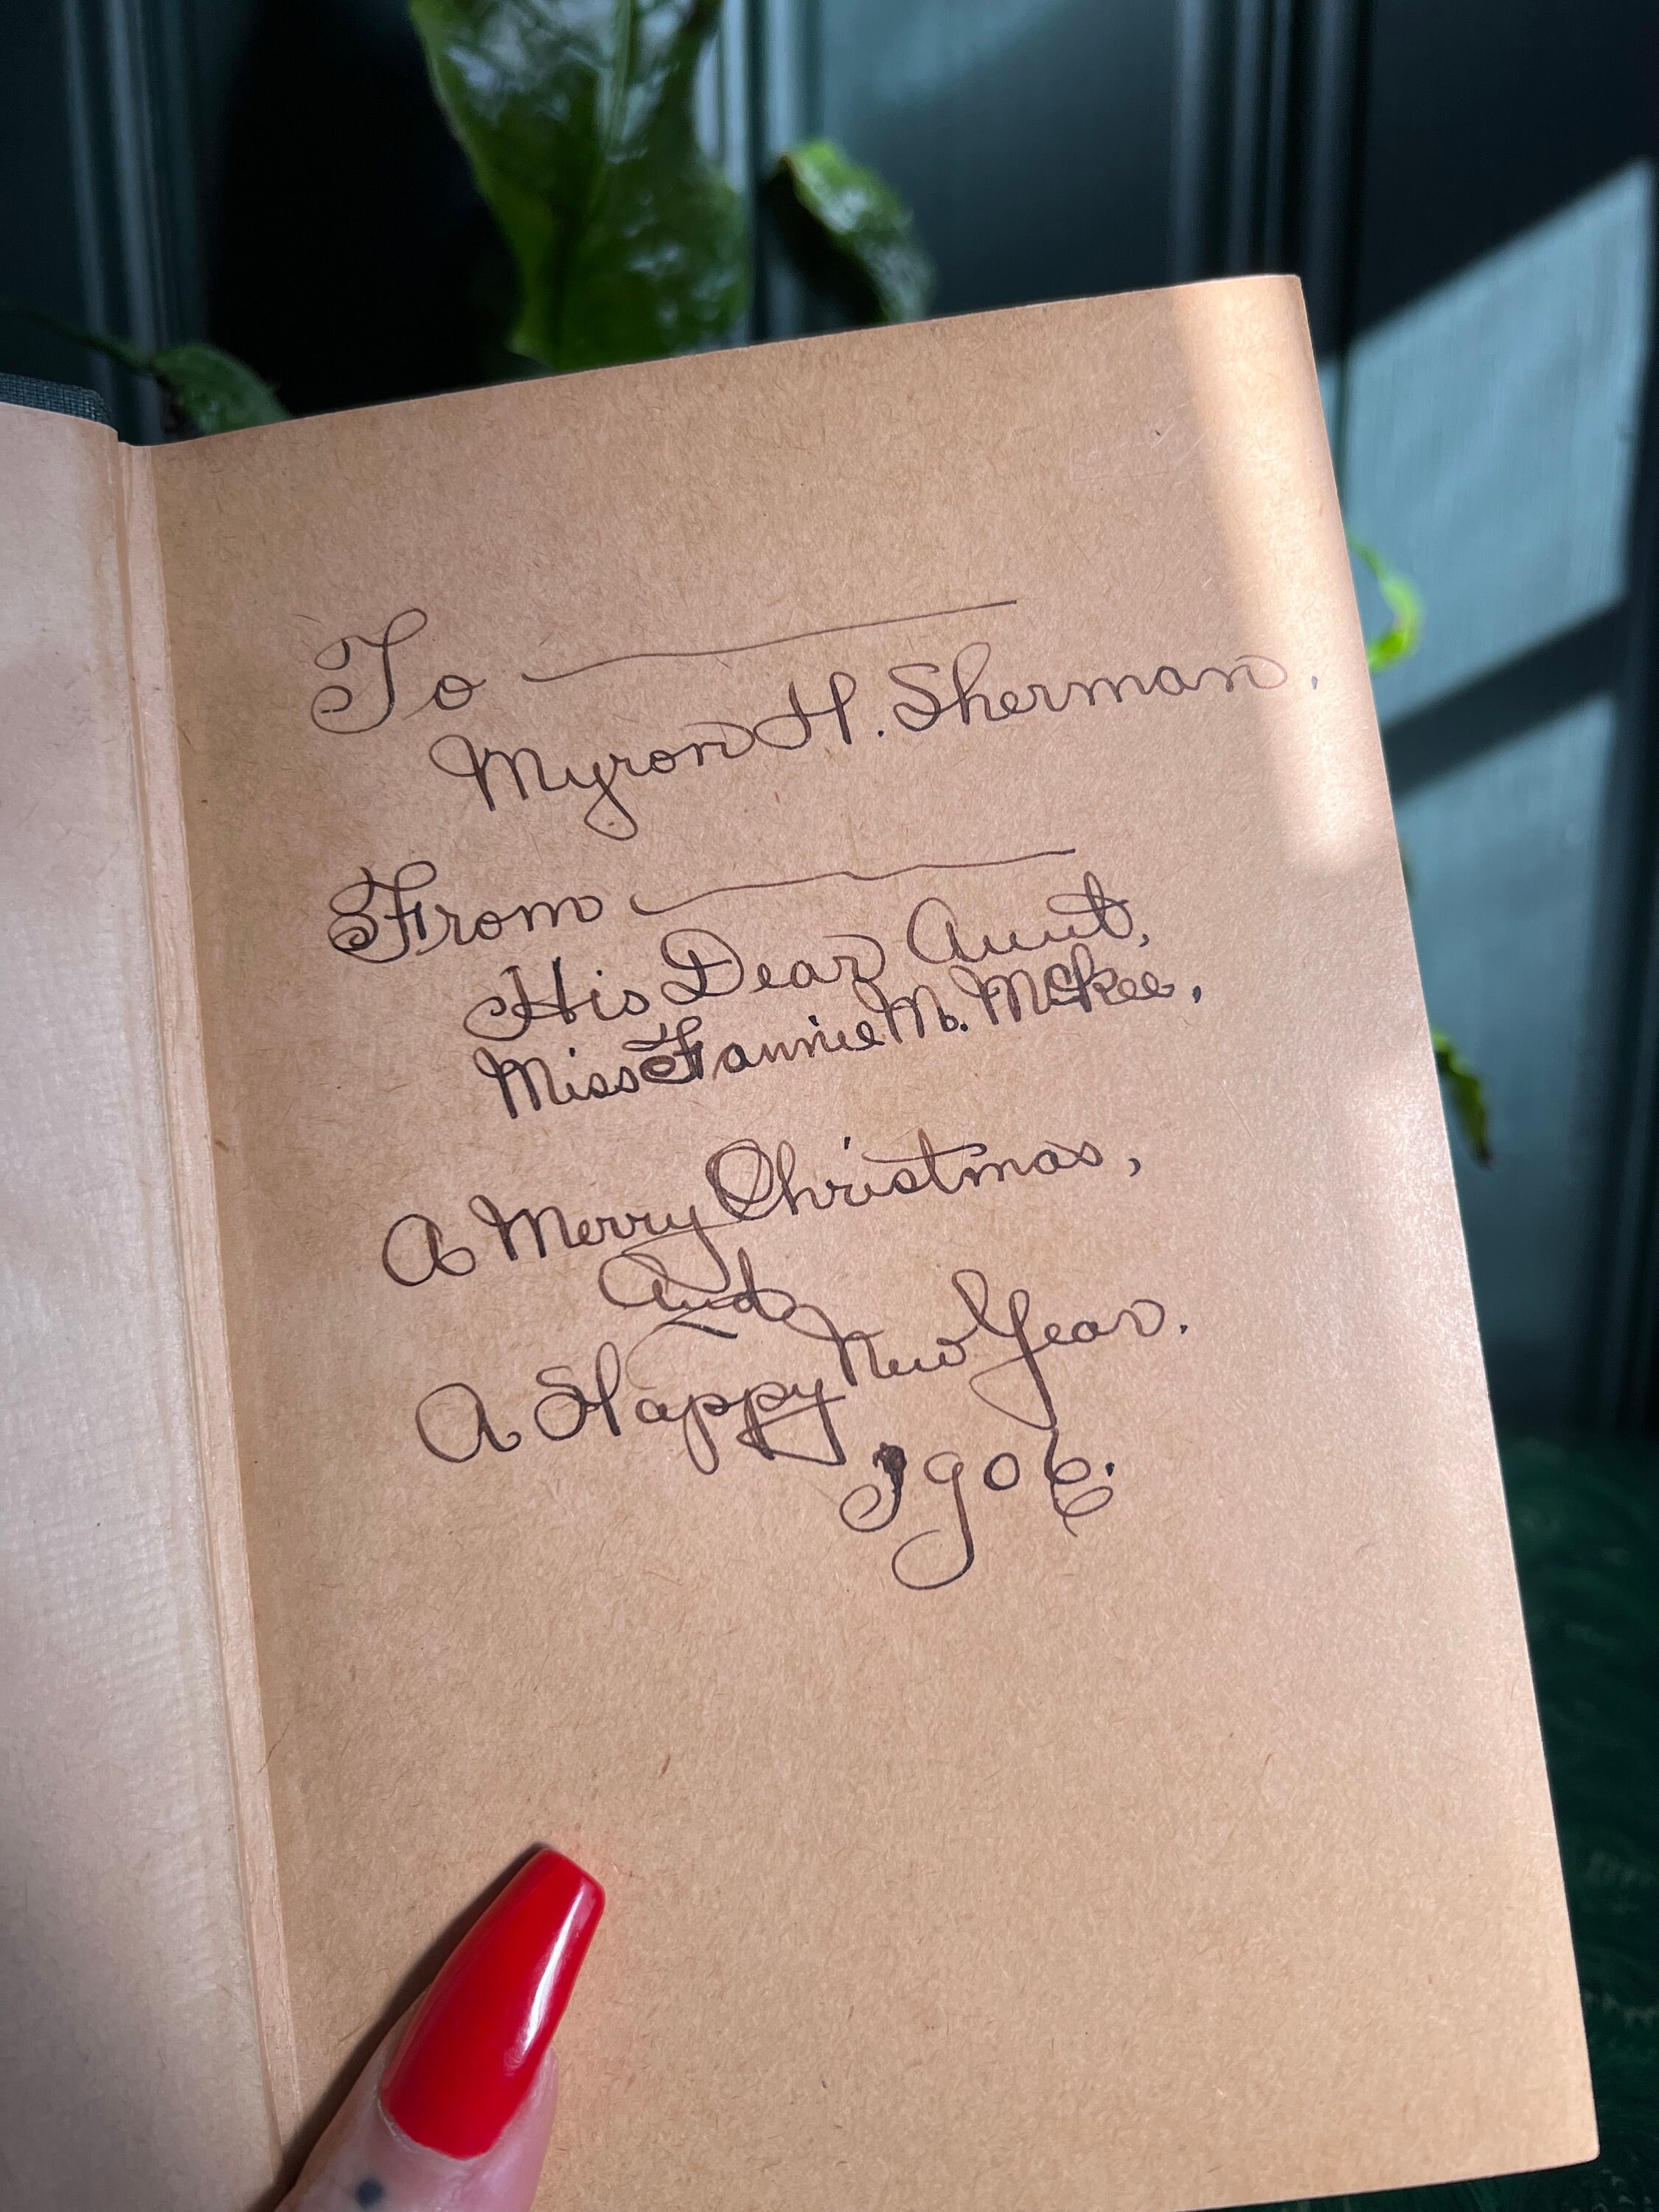 To
Myron H. Sherman.
From
His Dear Aunt,
Miss Fannie M. McKee.
A Merry Christmas,
And
A Happy New Year.
1906.